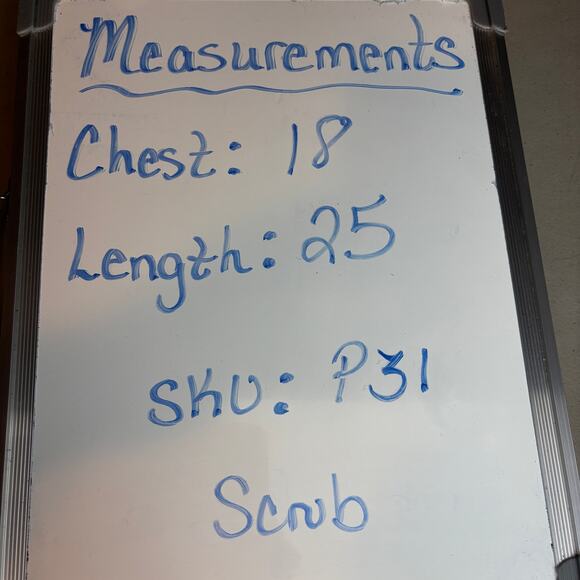 Measurements
Chest: 18
Length: 25
SKU: P31
Scrub